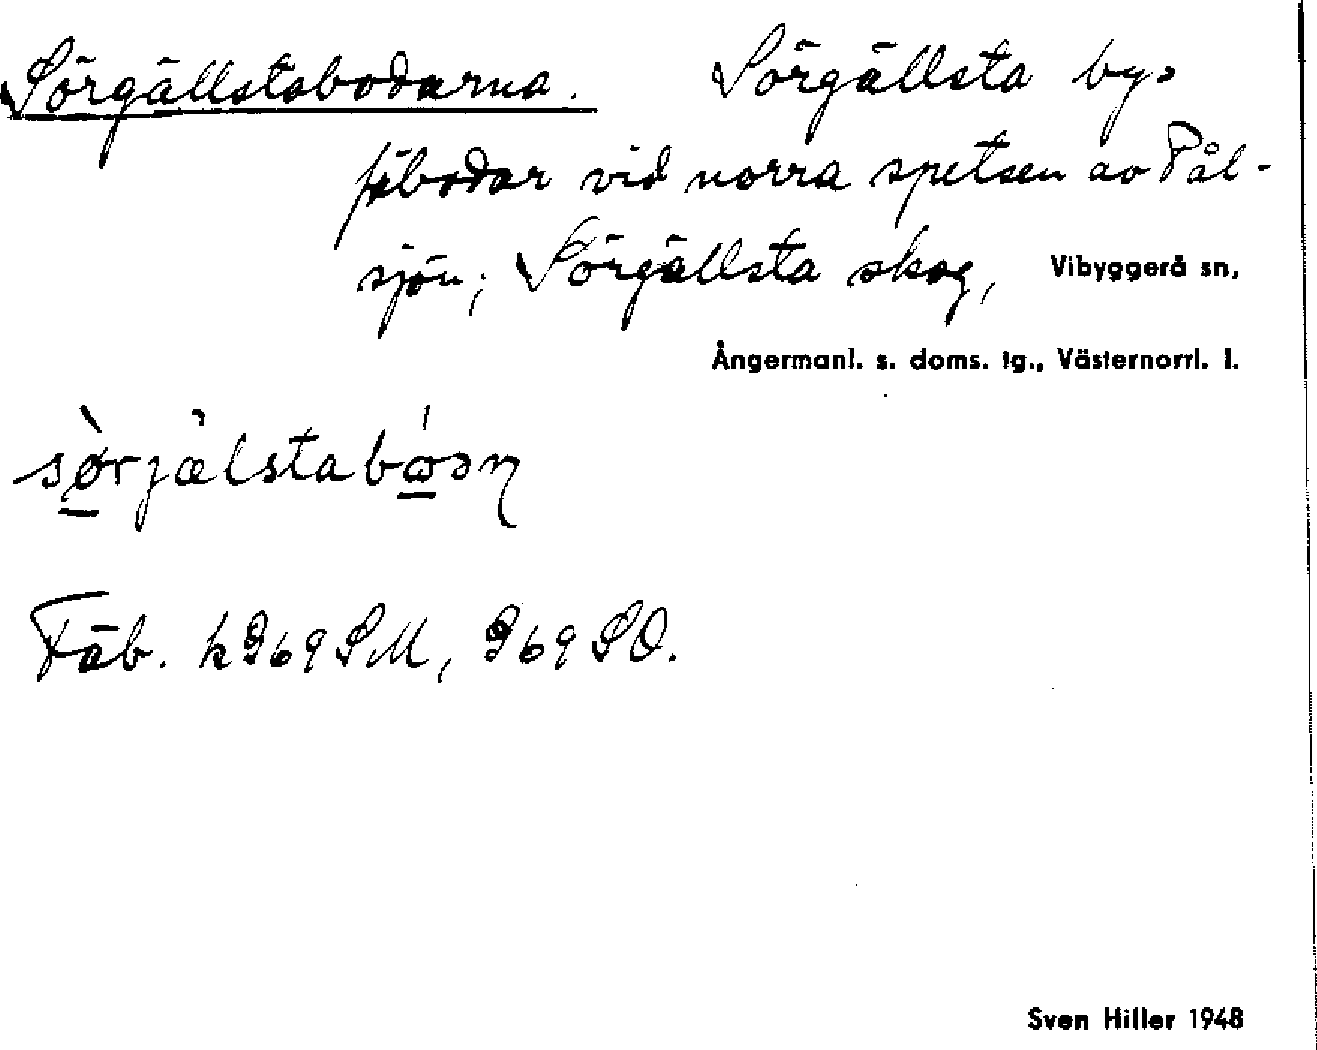 Sörgällstabodarna. Sörgällsta bys
fäbodar vid norra spetsen av Pål-
sjön; Sörgällsta skog, Vibyggerå sn,
Ångermanl. s. doms. tg., Västernorrl. l.
sø̀rjæ̀lstabó͕ɔṇ
Fäb. k 969 SM, 969 SO.
Sven Hiller 1948